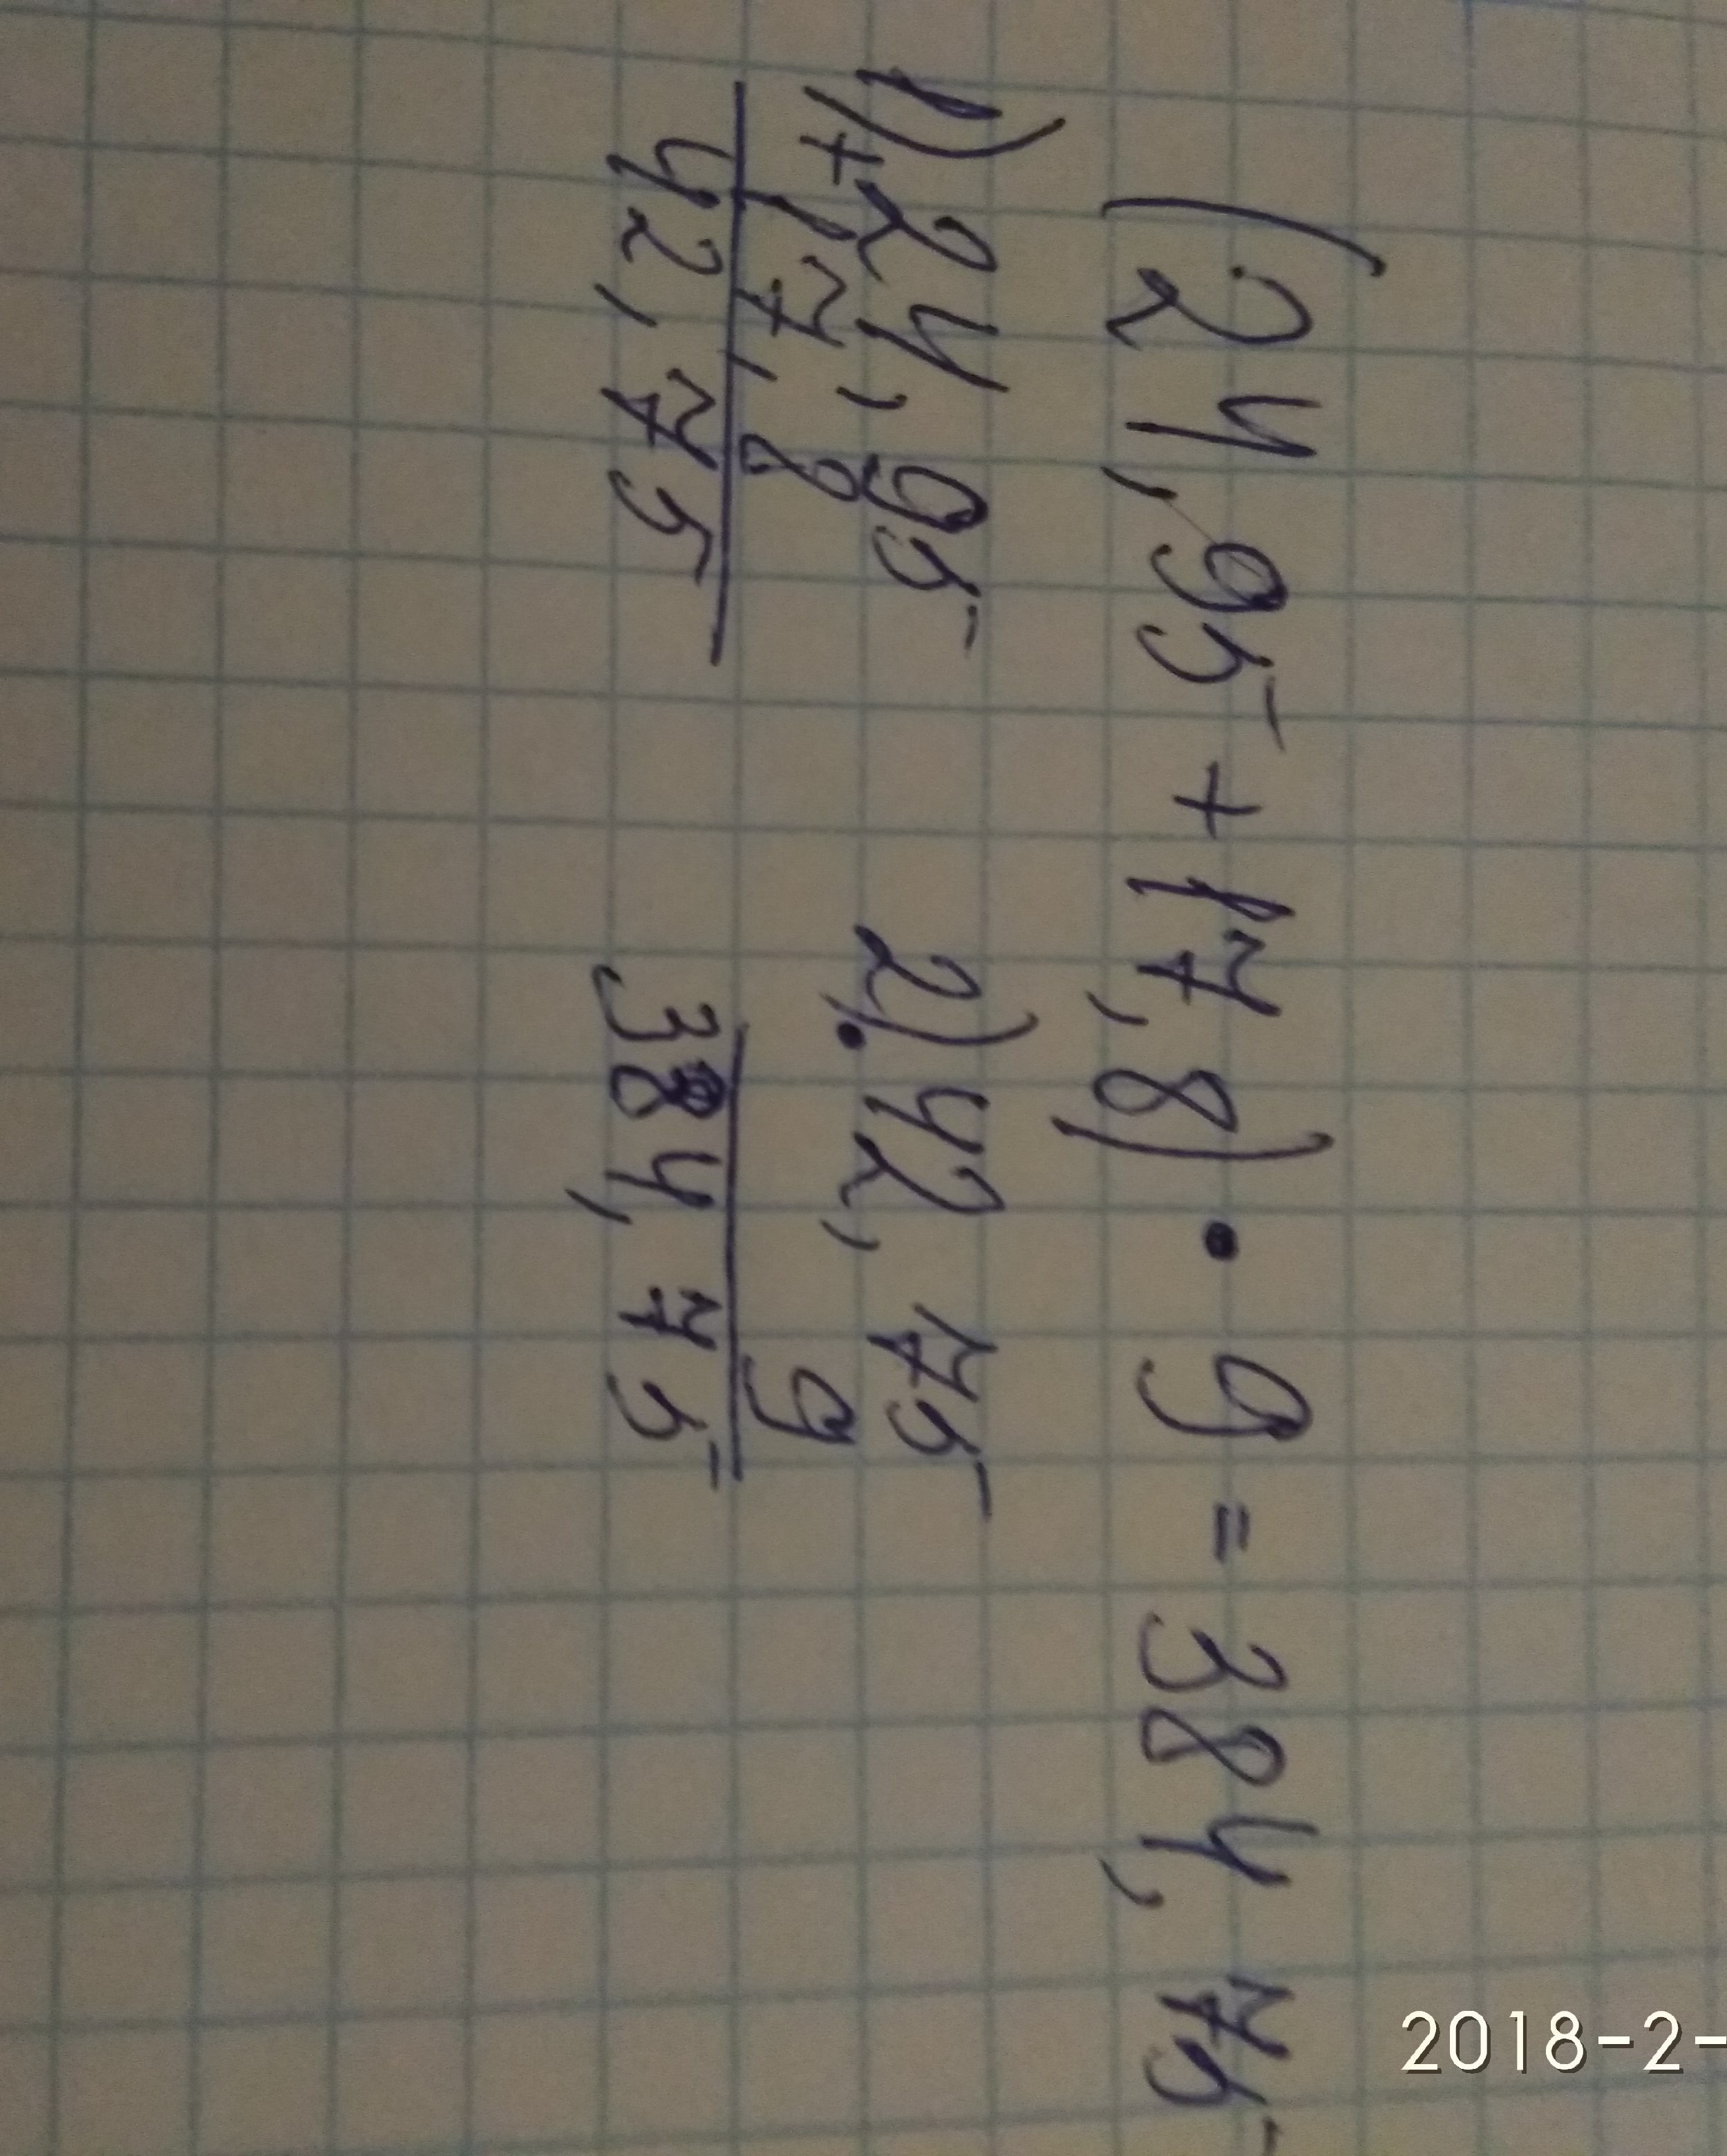 (24,95 + 17,8) • 9 = 384,75
1) + 24,95
17,8
42,75
2) • 42,75
9
384,75
2018-2-